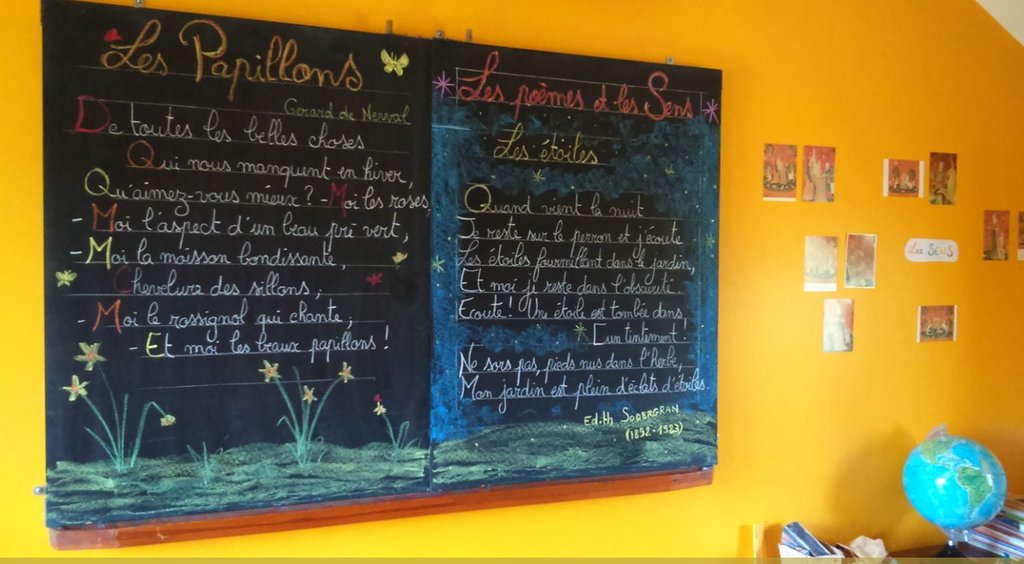 Les Papillons
Gerard de Nerval
De toutes les belles choses
Qui nous manquent en hiver,
Qu'aimez-vous mieux? - Moi les roses,
- Moi l'aspect d'un beau pré vert,
- Moi la moisson bondissante,
Chevelure des sillons;
- Moi le rossignol qui chante;
- Et moi les beaux papillons!
Les poèmes et les Sens
Les étoiles
Quand vient la nuit
Je reste sur le perron et j'écoute
Les étoiles fourmillent dans le jardin,
Et moi je reste dans l'obscurité.
Ecoute! Une étoile est tombée dans
[un tintement!
Ne sors pas, pieds nus dans l'herbe,
Mon jardin est plein d'éclats d'étoiles.
Edith SODERGRAN
(1892-1923)
Les SENS